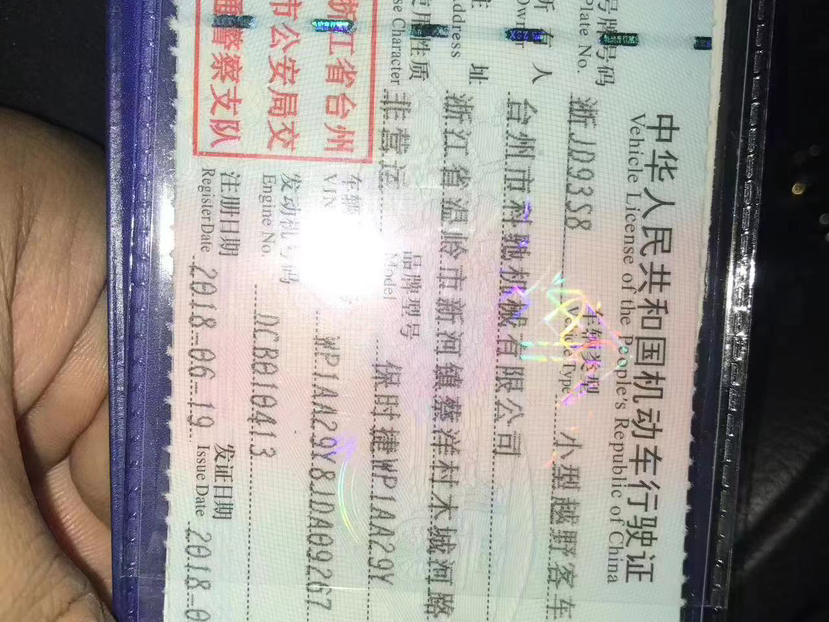 中华人民共和国机动车行驶证
Vehicle License of the People's Republic of China
号牌号码 浙JD93S8 车辆类型 小型越野客车
Plate No. Vehicle Type
所有人 台州市科驰机械有限公司
Owner
住址 浙江省温岭市新河镇蔡洋村木城河路
Address
使用性质 非营运 品牌型号 保时捷WP1AA29Y
Use Character Model
浙江省台州
市公安局交
通警察支队
车辆 WP1AA29Y8JDA09267
VIN
发动机号码 DCB010413
Engine No.
注册日期 2018-06-19 发证日期 2018-0
Register Date Issue Date